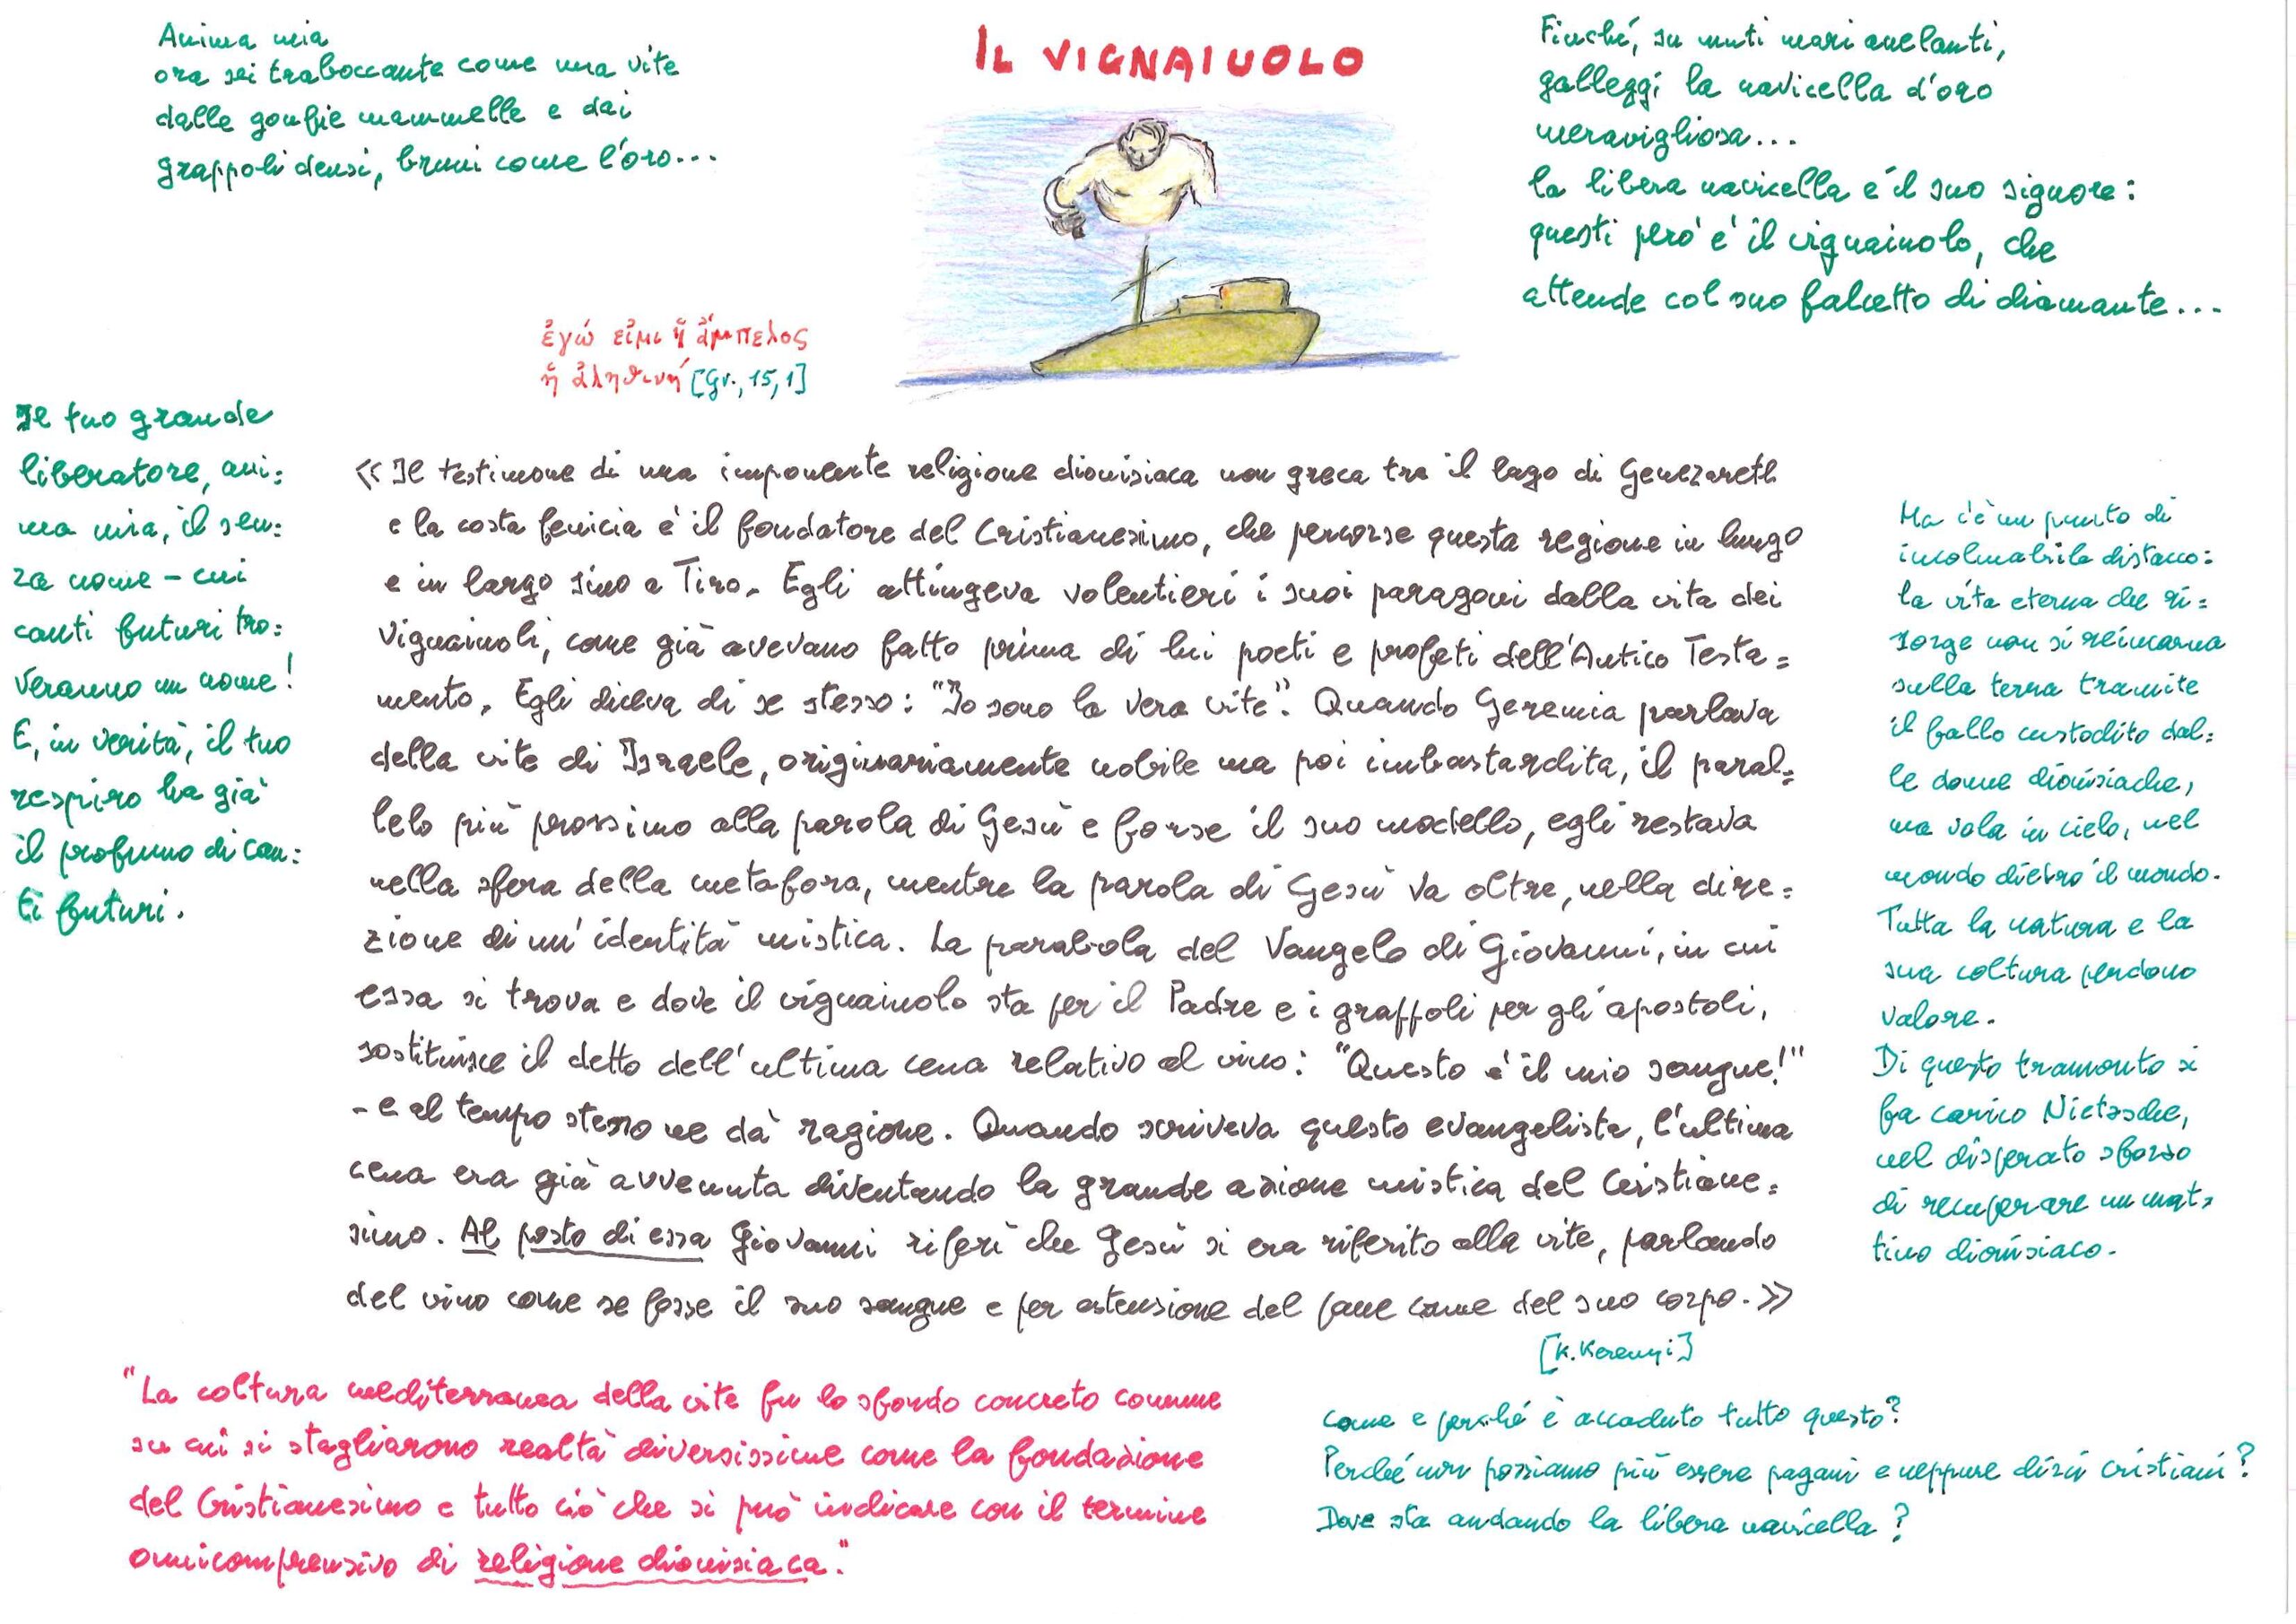 IL VIGNAIUOLO
Anima mia
ora sei traboccante come una vite
dalle gonfie mammelle e dai
grappoli densi, bruni come l'oro...
Finché, su muti mari anelanti,
galleggi la navicella d'oro
meravigliosa...
la libera navicella e il suo signore:
questi però è il vignaiuolo, che
attende col suo falcetto di diamante...
ἐγώ εἰμι ἡ ἄμπελος
ἡ ἀληθινή [Gv., 15,1]
Il tuo grande
liberatore, ani=
ma mia, il sen=
za nome - cui
canti futuri tro=
veranno un nome!
E, in verità, il tuo
respiro ha già
il profumo di can=
ti futuri.
«Il testimone di una imponente religione dionisiaca non greca tra il lago di Genezareth
e la costa fenicia è il fondatore del Cristianesimo, che percorse questa regione in lungo
e in largo sino a Tiro. Egli attingeva volentieri i suoi paragoni dalla vita dei
vignaiuoli, come già avevano fatto prima di lui poeti e profeti dell'Antico Testa=
mento. Egli diceva di se stesso: "Io sono la vera vite". Quando Geremia parlava
della vite di Israele, originariamente nobile ma poi imbastardita, il paral=
lelo più prossimo alla parola di Gesù e forse il suo modello, egli restava
nella sfera della metafora, mentre la parola di Gesù va oltre, nella dire=
zione di un'identità mistica. La parabola del Vangelo di Giovanni, in cui
essa si trova e dove il vignaiuolo sta per il Padre e i grappoli per gli apostoli,
sostituisce il detto dell'ultima cena relativo al vino: "Questo è il mio sangue!"
- e al tempo stesso ne dà ragione. Quando scriveva questo evangelista, l'ultima
cena era già avvenuta diventando la grande azione mistica del Cristiane=
simo. Al posto di essa Giovanni riferì che Gesù si era riferito alla vite, parlando
del vino come se fosse il suo sangue e per estensione del pane come del suo corpo.»
[K. Kerenyi]
Ma c'è un punto di
incolmabile distacco:
la vita eterna che ri=
sorge non si reincarna
sulla terra tramite
il fallo custodito dal=
le donne dionisiache,
ma vola in cielo, nel
mondo dietro il mondo.
Tutta la natura e la
sua coltura perdono
valore.
Di questo tramonto si
fa carico Nietzsche,
nel disperato sforzo
di recuperare un mat=
tino dionisiaco.
"La coltura mediterranea della vite fu lo sfondo concreto comune
su cui si stagliarono realtà diversissime come la fondazione
del Cristianesimo e tutto ciò che si può indicare con il termine
omnicomprensivo di religione dionisiaca."
Come e perché è accaduto tutto questo?
Perché non possiamo più essere pagani e neppure dirci cristiani?
Dove sta andando la libera navicella?